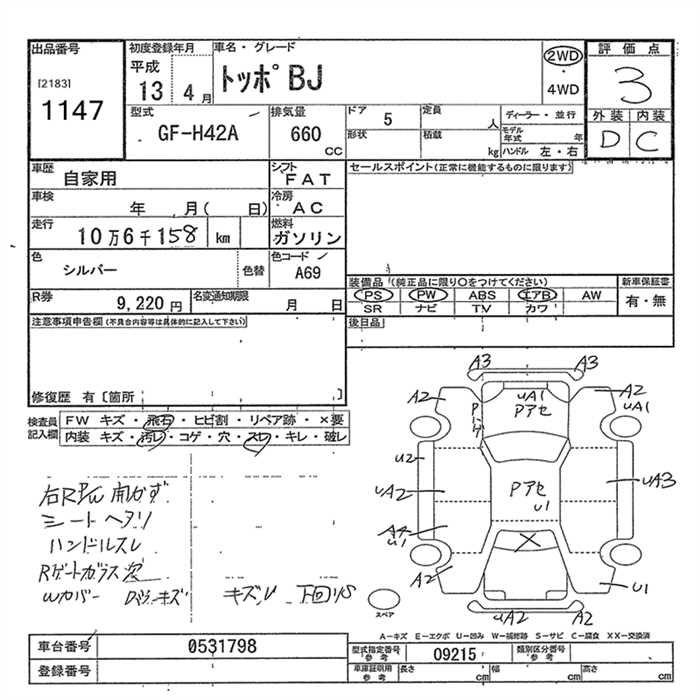 出品番号
[2183]
1147
初度登録年月
平成
13 4月
車名・グレード
トッポBJ
2WD
・
4WD
評価点
3
外装 内装
D C
型式
GF-H42A
排気量
660
CC
ドア 5
形状
定員 人
積載 kg
ディーラー・並行
モデル年式 年
ハンドル 左・右
車歴 自家用
シフト FAT
車検 年 月( 日)
冷房 AC
走行 10万6千158 km
燃料 ガソリン
色 シルバー 色替
色コード A69
R券 9,220円
名変通知期限 月 日
セールスポイント(正常に機能するものに限ります)
装備品 (純正品に限り○をつけてください)
PS PW ABS エアB AW
SR ナビ TV カワ
新車保証書
有・無
後日品
注意事項申告欄 (不具合内容等は具体的に記入して下さい)
修復歴 有〔箇所 〕
検査員記入欄
FW キズ・飛石・ヒビ割・リペア跡・×要
内装 キズ・汚レ・コゲ・穴・スレ・キレ・破レ
右R P/W 開かず
シートヘタリ
ハンドルスレ
Rゲートガラス
Wカバー キズ
A3 A3
A2 A2
UA1 UA1
Pアセ
U2
UA2 UA3
Pアセ
U1
A4
U1
A2 U1
UA2 A2
スペア
A-キズ E-エクボ U-凹み W-補修跡 S-サビ C-腐食 XX-交換済
車台番号 0531798
登録番号
型式指定番号 参考 09215
類別区分番号 参考
車庫証明用 参考 長さ cm 幅 cm 高さ cm